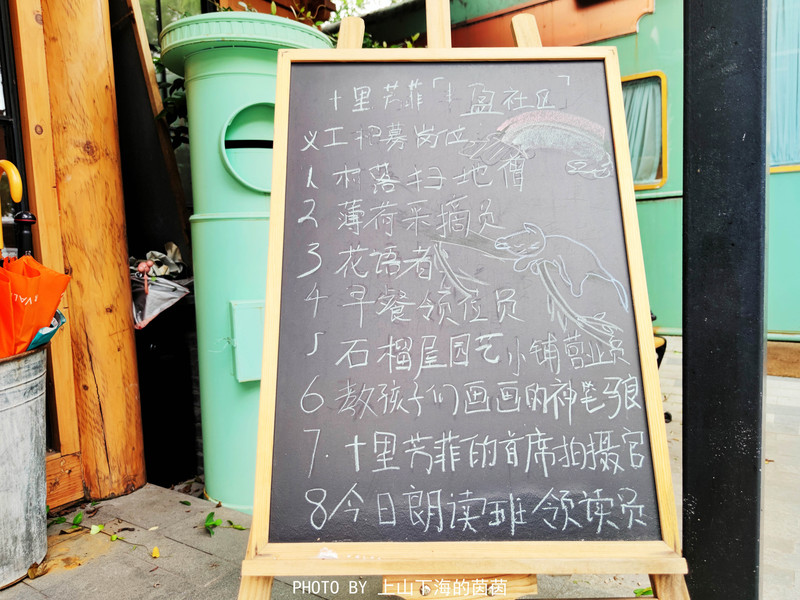 十里芳菲「小盈社区」
义工招募岗位
1 村落扫地僧
2 薄荷采摘员
3 花语者
4 早餐领位员
5 石榴屋园艺小铺营业员
6 教孩子们画画的神笔马良
7. 十里芳菲的首席拍摄官
8 今日朗读班领读员
PHOTO BY 上山下海的茵茵